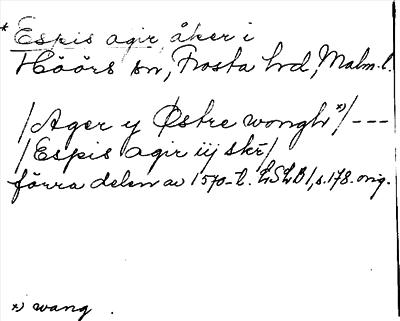 * Espis agir, åker i
Höörs sn, Frosta hrd, Malm. l.
/Ager y Østre wongh *)/ ---
/Espis agir iij ske/
förra delen av 1570-t. LSLB 1, s. 178. orig.
*) wang .